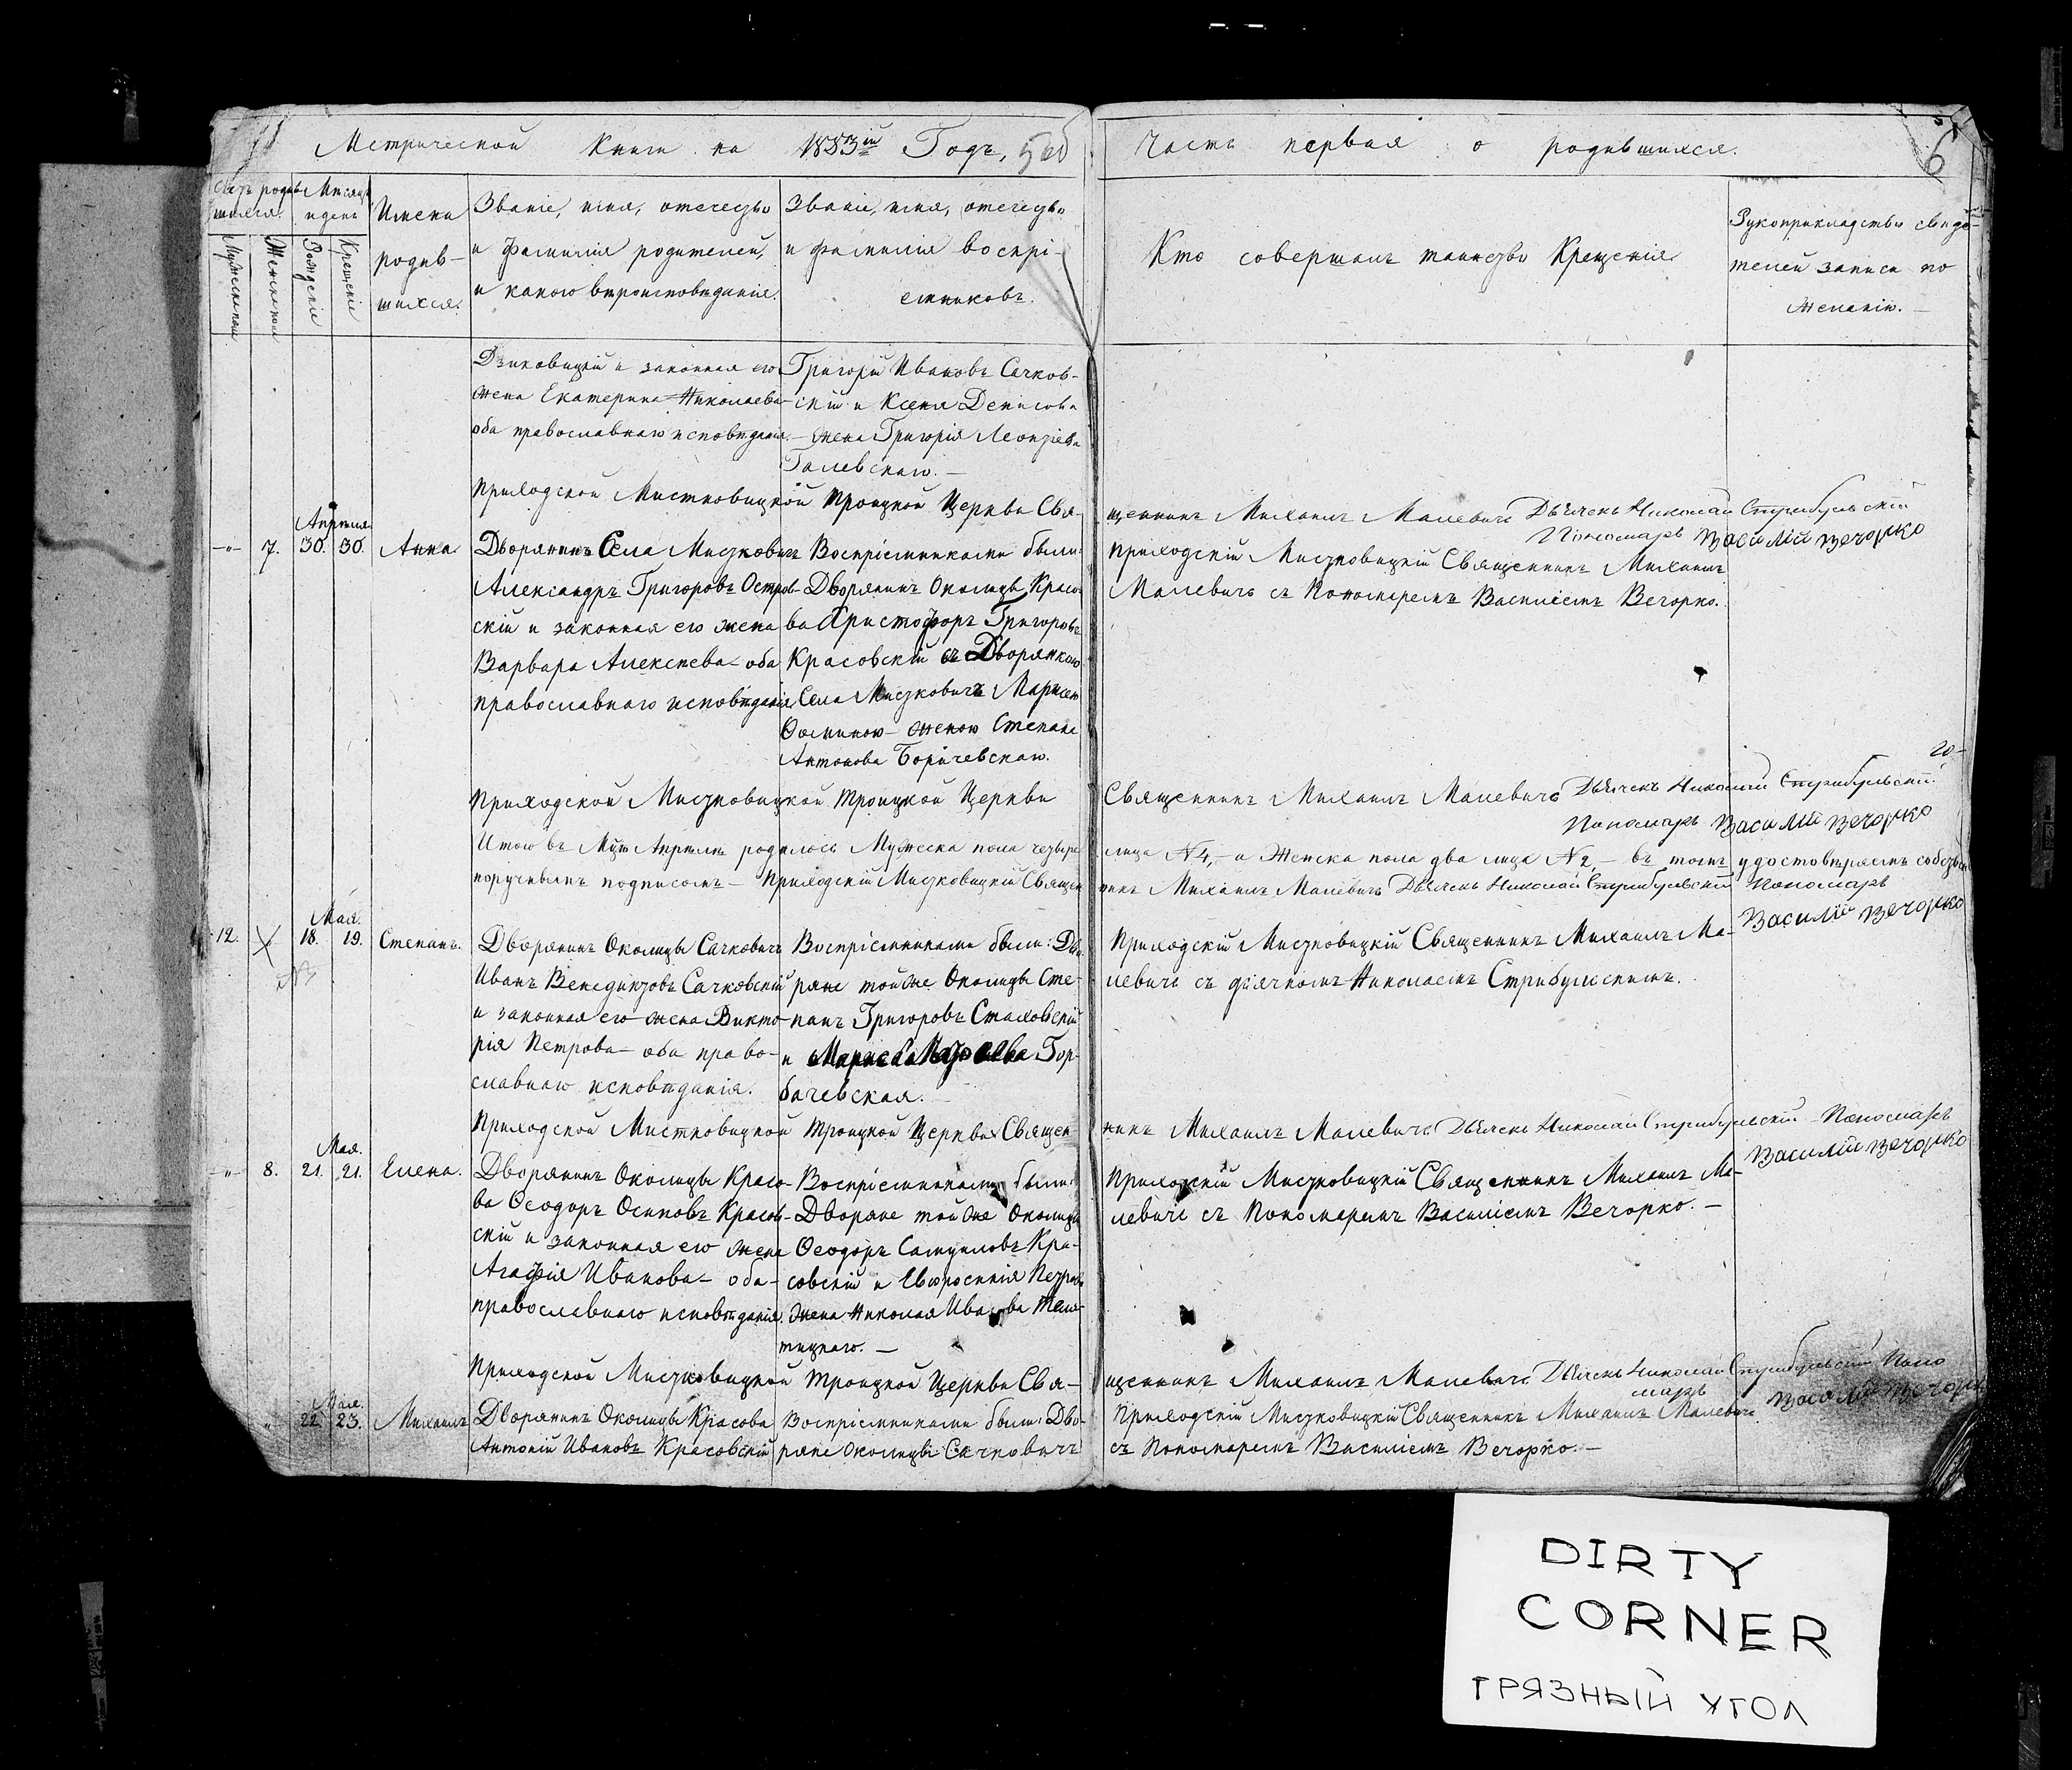 Метрической Книги на 1853й Годъ,
Часть первая о родившихся.
6
Счетъ родив-
шихся.
Мѣсяцъ
и день
Мужеска пола
Женска пола
Рожденія
Крещенія
Имена
родив-
шихся.
Званіе, имя, отечество
и фамилія родителей,
и какого вѣроисповѣданія.
Званіе, имя, отечество
и фамилія воспрі-
емниковъ.
Кто совершалъ таинство Крещенія
Рукоприкладство свидѣ-
телей записи по
желанію. —
Дзиковицкій и законная его
жена Екатерина Николаева
оба православнаго исповѣданія. —
Григорій Ивановъ Сачков-
скій и Ксенія Денисова
жена Григорія Леонтіева
Галевскаго. —
Приходской Мистковицкой Троицкой Церкви Свя-
щенникъ Михаилъ Малевичъ Дьячекъ Николай Стрибульскій
Пономарь Василій Вечорко
Апрѣля
-"- 7. 30. 30. Анна
Дворянинъ Села Мистковичъ
Александръ Григоровъ Остров-
скій и законная его жена
Варвара Алексѣева — оба
православнаго исповѣданія
Воспріемниками были:
Дворянинъ Околицы Красо-
ва Христофоръ Григоровъ
Красовскій съ Дворянкою
Села Мистковичъ Марiею
Ѳоминою — женою Степана
Антонова Боричевскаго.
Приходскій Мистковицкій Священникъ Михаилъ
Малевичъ съ Пономаремъ Василіемъ Вечорко.
Приходской Мистковицкой Троицкой Церкви
Священникъ Михаилъ Малевичъ Дьячекъ Николай Стрибульскій
Пономарь Василій Вечорко
Итого въ Мцѣ Апрѣлѣ родилось Мужеска пола четыре
лица № 4, — а Женска пола два лица № 2, — въ томъ удостовѣряемъ собствен
норучнымъ подписомъ — Приходскій Мистковицкій Священ
никъ Михаилъ Малевичъ Дьячекъ Николай Стрибульскій Пономарь
Василій Вечорко
Мая.
12. 18. 19. Степанъ.
Дворянинъ Околицы Сачковичъ
Иванъ Венедиктовъ Сачковскій
и законная его жена Викто-
рія Петрова — оба право-
славнаго исповѣданія.
Воспріемниками были: Дво-
ряне той же Околицы Сте-
панъ Григоровъ Стаховскій
и Гор-
бачевская.
Приходскій Мистковицкій Священникъ Михаилъ Ма-
левичъ съ дьячкомъ Николаемъ Стрибульскимъ.
Приходской Мистковицкой Троицкой Церкви Священ
никъ Михаилъ Малевичъ Дьячекъ Николай Стрибульскій Пономарь
Василій Вечорко
Мая.
-"- 8. 21. 21. Елена.
Дворянинъ Околицы Красо-
ва Ѳеодоръ Осиповъ Красов-
скій и законная его жена
Агафія Иванова — оба —
православнаго исповѣданія.
Воспріемниками были:
Дворяне той же Околицы
Ѳеодоръ Самуиловъ Кра-
совскій и Евфросинія Петрова
жена Николая Иванова Теле-
тицкаго. —
Приходскій Мистковицкій Священникъ Михаилъ Ма-
левичъ съ Пономаремъ Василіемъ Вечорко. —
Приходской Мистковицкой Троицкой Церкви Свя-
щенникъ Михаилъ Малевичъ Дьячекъ Николай Стрибульскій Поно
марь Василій Вечорко
Мая.
" 22. 23. Михаилъ
Дворянинъ Околицы Красова
Антоній Ивановъ Красовскій
Воспріемниками были: Дво-
ряне Околицы Сачковичъ
Приходскій Мистковицкій Священникъ Михаилъ Малевичъ
съ Пономаремъ Василіемъ Вечорко. —
DIRTY
CORNER
ГРЯЗНЫЙ УГОЛ